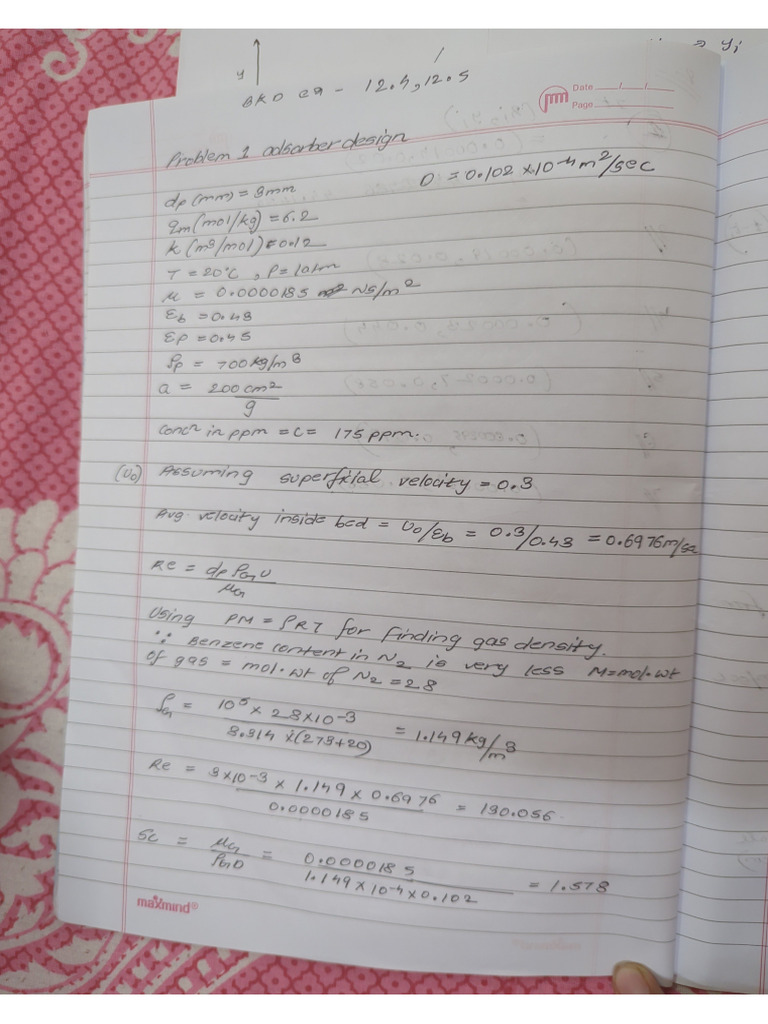 y
BKD eq - 12.4, 12.5
Date / /
Page
Problem 1 adsorber design
dp (mm) = 3mm
D = 0.102 × 10⁻⁴ m²/sec
qm (mol/kg) = 6.2
k (m³/mol) = 0.12
T = 20°C , P = 1atm
μ = 0.0000185 NS/m²
εb = 0.43
εp = 0.45
ρp = 700 kg/m³
a = 200 cm²/g
Concⁿ in ppm = C = 175 ppm.
(U₀) Assuming superficial velocity = 0.3
Avg velocity inside bed = U₀/εb = 0.3/0.43 = 0.6976 m/sec
Re = dp ρG U / μG
Using PM = ρRT for finding gas density.
∵ Benzene content in N₂ is very less M = mol. wt
of gas = mol. wt of N₂ = 28
ρG = 10⁵ × 28 × 10⁻³ / 8.314 × (273+20) = 1.149 kg/m³
Re = 3×10⁻³ × 1.149 × 0.6976 / 0.0000185 = 130.056
Sc = μG / ρG D = 0.0000185 / 1.149 × 10⁻⁴ × 0.102 = 1.578
maxmind®